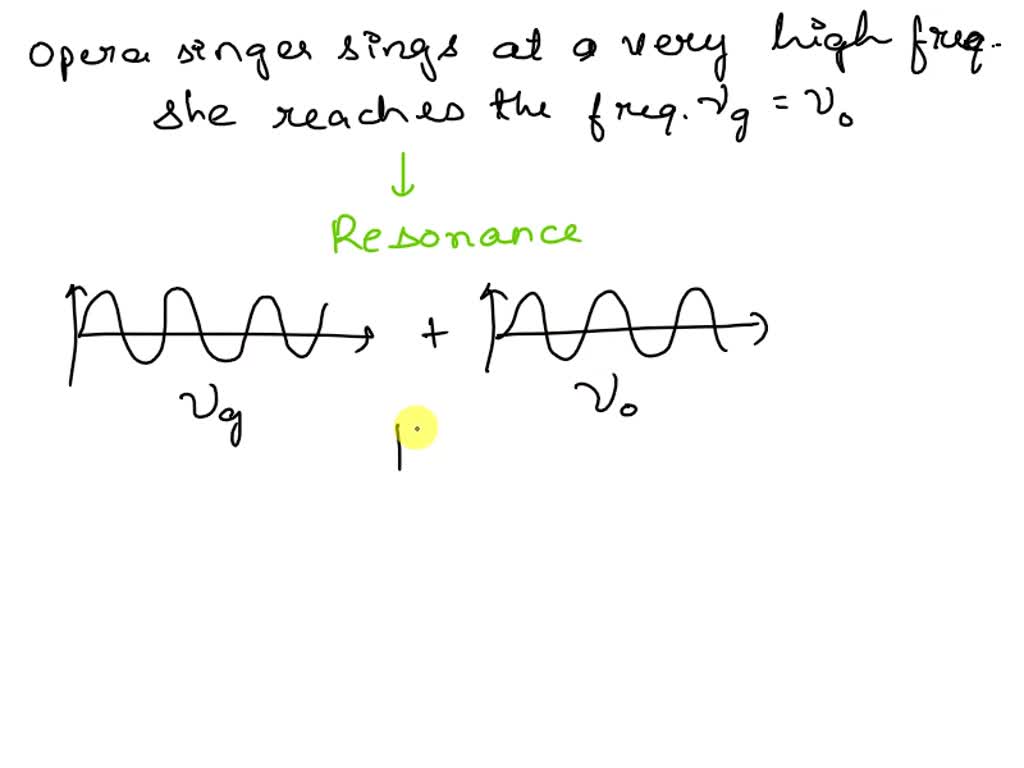 Opera singer sings at a very high freq.
she reaches the freq. νg = ν₀
↓
Resonance
+
νg ν₀